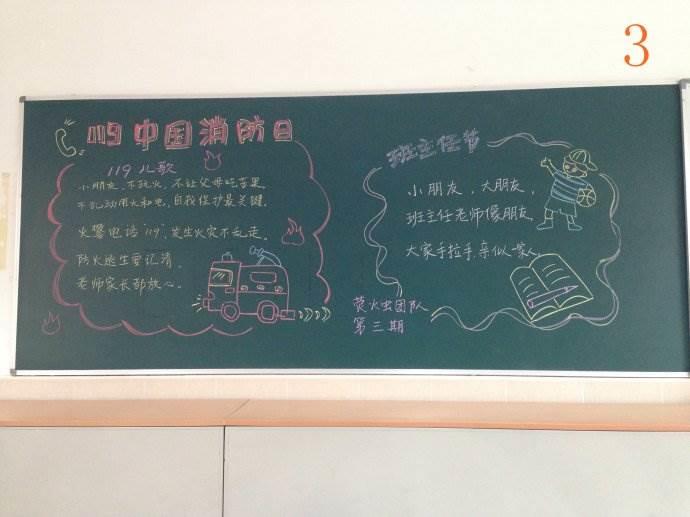 3
119中国消防日
119儿歌
小朋友,不玩火,不让父母吃苦果
不乱动用火和电,自我保护最关键。
火警电话119,发生火灾不乱走。
防火逃生要认清,
老师家长都放心。
班主任节
小朋友,大朋友,
班主任老师像朋友
大家手拉手,亲似一家人
萤火虫团队
第三期